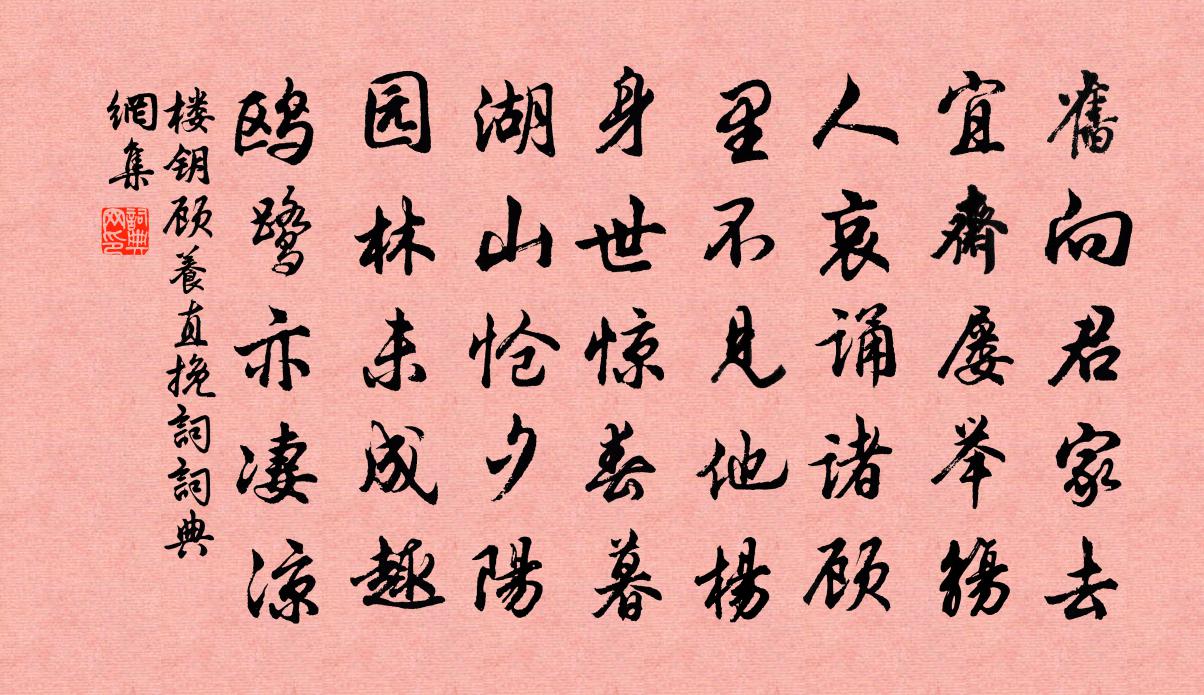 舊向君家去
宜齋屡举觞
人哀诵诸顾
里不见他楊
身世惊春暮
湖山怆夕陽
园林未成趣
鸥鹭亦凄凉
楼钥顾養直挽詞詞典
網集
詞典
网印